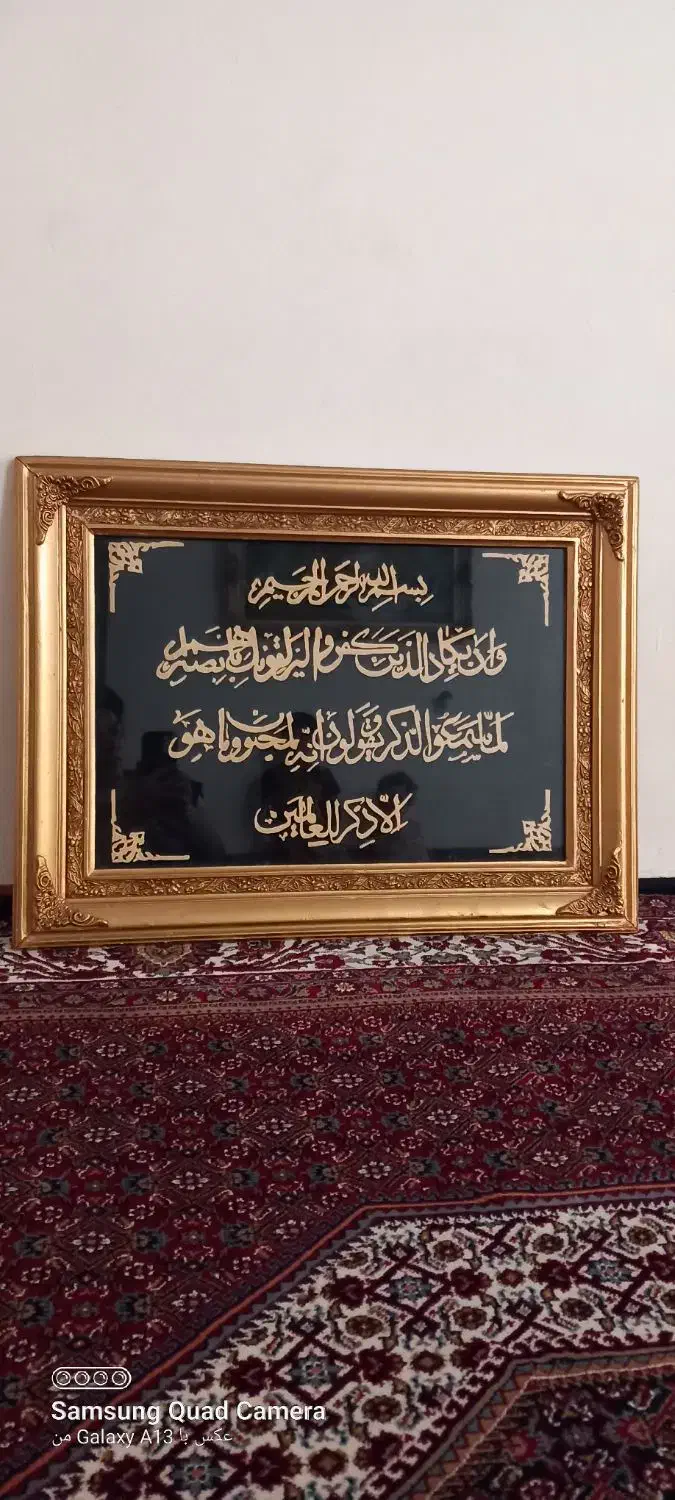 بسم الله الرحمن الرحيم
وان يكاد الذين كفروا ليزلقونك بابصارهم
لما سمعوا الذكر ويقولون انه لمجنون وما هو
الا ذكر للعالمين
Samsung Quad Camera
عکس با Galaxy A13 من